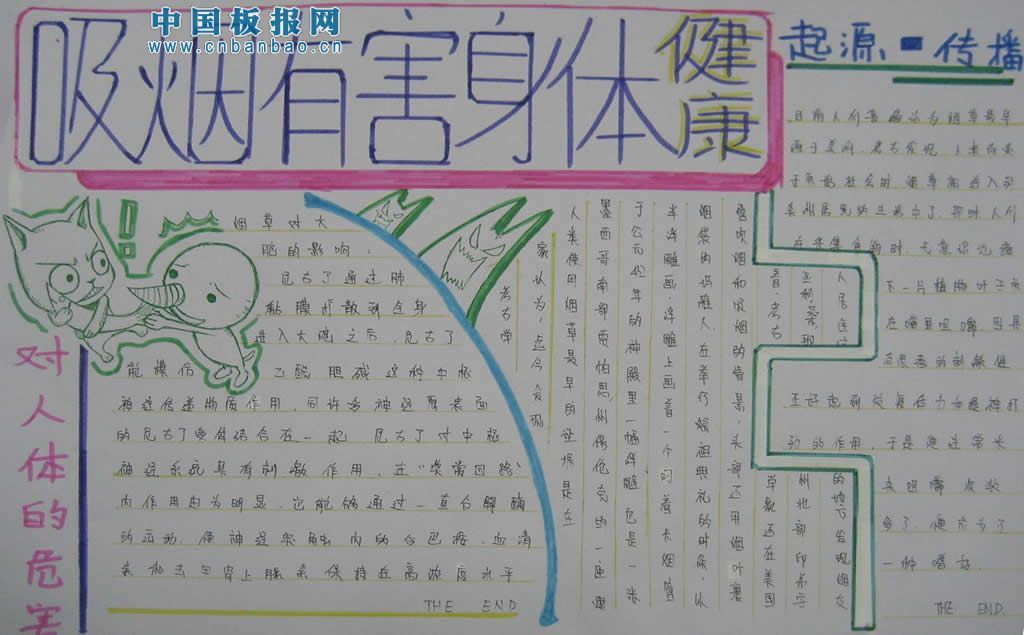 中国板报网
www.cnbanbao.cn
吸烟有害身体健康
起源-传播
对人体的危害
烟草对大
脑的影响：
尼古丁通过肺
粘膜扩散到全身
进入大脑之后，尼古丁
能模仿 乙酰胆碱这种中枢
神经传递物质作用，同许多神经质表面
的尼古丁受体结合在一起 尼古丁对中枢
神经系统具有刺激作用，在"奖赏回路"
内作用由为明显，它能够通过一直台醇酶
的运动，使神经突触内的多巴胺，血清
素和去甲肾上腺素保持在高浓度水平
THE END
考古学
家认为，迄今发现
人类使用烟草最早的证据是在
墨西哥南部贾帕思州倍伦克的一座建
于公元432年的神殿里一幅浮雕 它是一张
半浮雕画，浮雕上画着一个叼着长烟管
烟袋的玛雅人，在举行祭祖典礼的时候，以
管吹烟和吸烟的情景，头部还用烟叶裹
着，考古
草教还在美国
亚利桑那
州北部印弟安
人居住过
的地下发现烟
目前人们普遍认为烟草最早
源于美洲，考古发现，人类尚处
于原始社会时，烟草就进入到
美洲居民的生活中了，那时人们
在采集食物时，无意识地摘
下一片植物叶子放
在嘴里咀嚼，因其
在很强的刺激性
正好起到恢复体力和提神打
劲的作用，于是便经常采
来咀嚼，次数
多了，便成为了
一种嗜好。
THE END